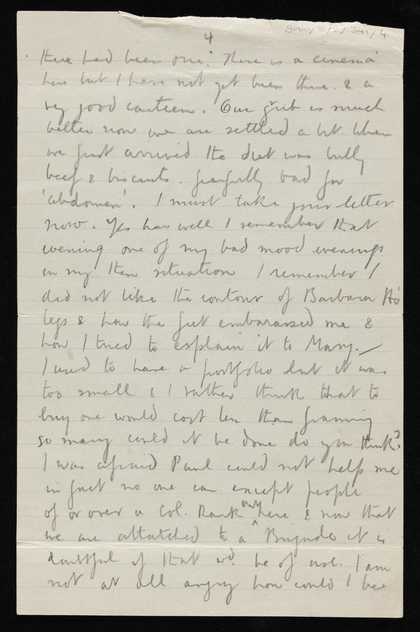 4
there had been one. There is a cinema
here but I have not yet been there. & a
very good canteen. Our grub is much
better now we are settled a bit. When
we first arrived the diet was bully
beef & biscuits. frightfully bad for
'abdomen'. I must take your letter
now. Yes how well I remember that
evening one of my bad mood evenings
in my then situation I remember I
did not like the contour of Barbara H's
legs & how the fact embarassed me &
how I tried to explain it to Mary. —
I used to have a portfolio but it was
too small & I rather think that to
buy one would cost less than framing
so many could it be done do you think?
I was afraid Paul could not help me
in fact no one can except people
of or over a Col. Rank out here & now that
we are attatched to a Brigade it is
doubtful if that wd. be of use. I am
not at all angry how could I be